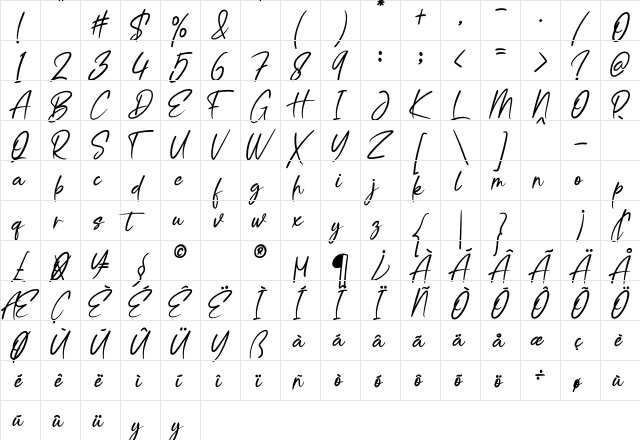 ! " # $ % & ( ) * + , - . / 0
1 2 3 4 5 6 7 8 9 : ; < = > ? @
A B C D E F G H I J K L M N O P
Q R S T U V W X Y Z [ \ ] –
a b c d e f g h i j k l m n o p
q r s t u v w x y z { | } ¡ ¢
£ ¥ § © ® ¶ ¿ À Á Â Ã Ä Å
Æ Ç È É Ê Ë Ì Í Î Ï Ñ Ò Ó Ô Õ Ö
Ø Ù Ú Û Ü Ý ß à á â ã ä å æ ç è
é ê ë ì í î ï ñ ò ó ô õ ö ÷ ø ù
ú û ü ý ÿ